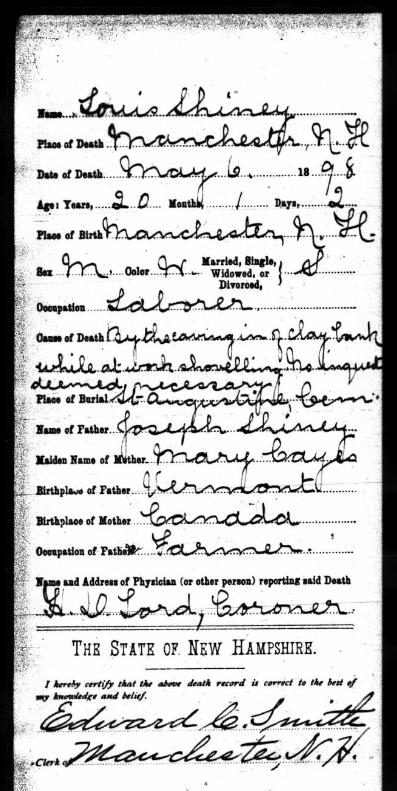 Name, Louis Shiney
Place of Death Manchester, N. H
Date of Death May 6, 1898
Age: Years, 20 Months, 1 Days, 2
Place of Birth Manchester, N. H.
Sex M. Color W. Married, Single, Widowed, or Divorced, } S
Occupation Laborer
Cause of Death By the caving in of clay bank
while at work shovelling No inquest
deemed necessary
Place of Burial St Augustine Cem.
Name of Father Joseph Shiney
Maiden Name of Mother Mary Cayes
Birthplace of Father Vermont
Birthplace of Mother Canada
Occupation of Father Farmer.
Name and Address of Physician (or other person) reporting said Death
H. D. Lord, Coroner.
THE STATE OF NEW HAMPSHIRE.
I hereby certify that the above death record is correct to the best of
my knowledge and belief.
Edward C. Smith
Clerk of Manchester, N. H.